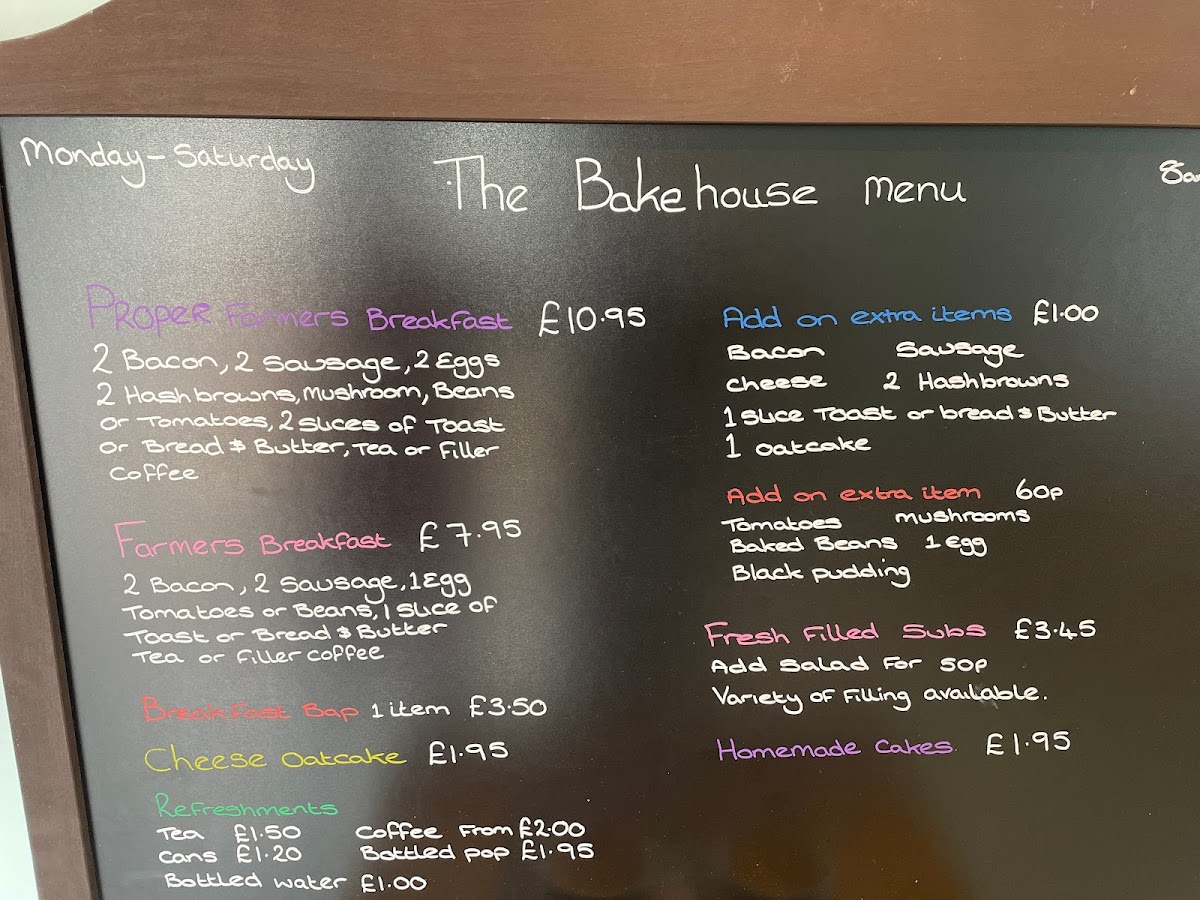 Monday - Saturday
The Bakehouse menu
8a
Proper Farmers Breakfast £10.95
2 Bacon, 2 Sausage, 2 Eggs
2 Hashbrowns, Mushroom, Beans
or Tomatoes, 2 slices of Toast
or Bread & Butter, Tea or Filler
Coffee
Farmers Breakfast £7.95
2 Bacon, 2 Sausage, 1 Egg
Tomatoes or Beans, 1 slice of
Toast or Bread & Butter
Tea or Filler coffee
Breakfast Bap 1 item £3.50
Cheese Oatcake £1.95
Refreshments
Tea £1.50 Coffee From £2.00
Cans £1.20 Bottled pop £1.95
Bottled water £1.00
Add on extra items £1.00
Bacon Sausage
Cheese 2 Hashbrowns
1 slice Toast or bread & Butter
1 oatcake
Add on extra item 60p
Tomatoes mushrooms
Baked Beans 1 Egg
Black pudding
Fresh Filled Subs £3.45
Add Salad For 50p
Variety of Filling available.
Homemade Cakes. £1.95